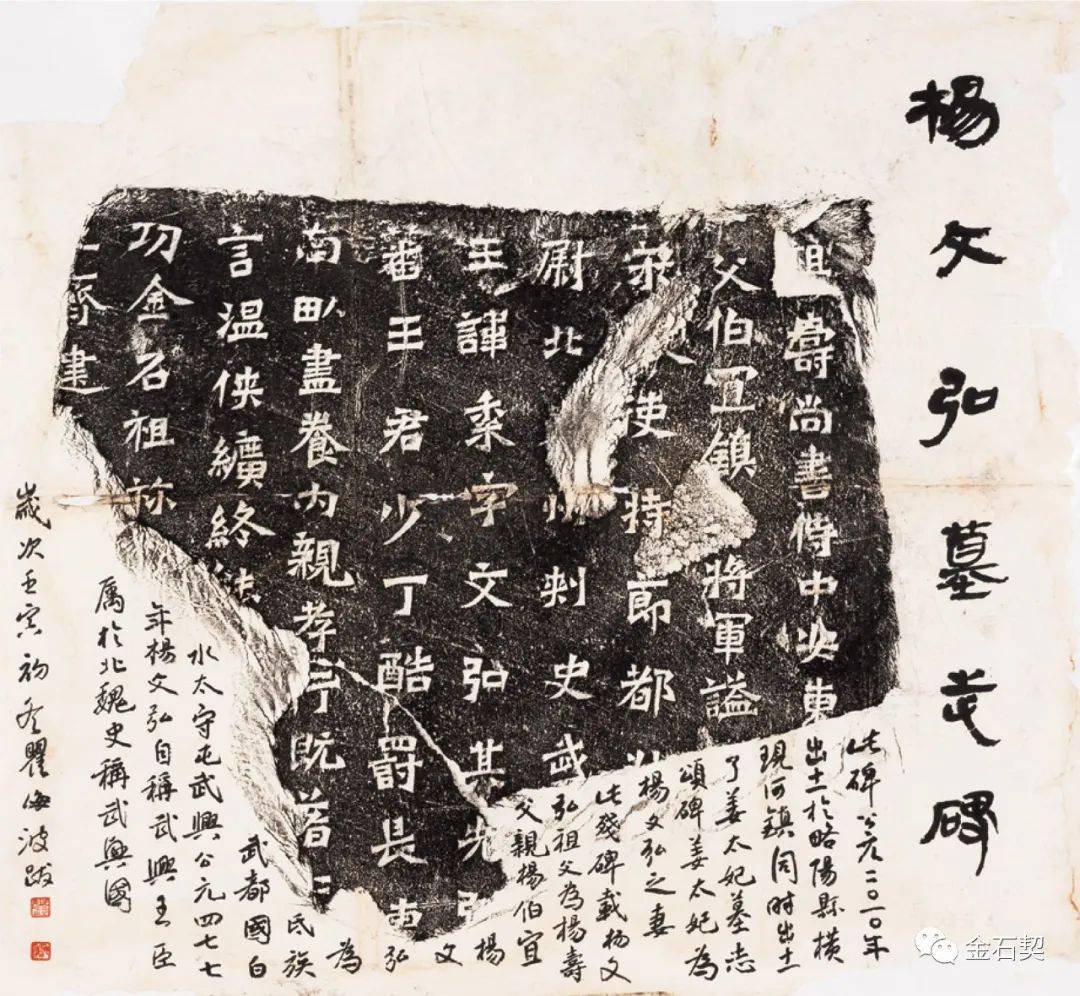 楊文弘墓志碑
壽尚書侍中安東
父伯宜鎮將軍謚
使持節都
尉北刾史武
王諱䅽字文弘其先
蕃王君少丁酷罰長
南畝盡養內親孝既著
言溫俠纊終
功金石祖祢
齊建
此碑公元二〇一〇年
出土於略陽縣橫
現河鎮同時出土
了姜太妃墓志
頌碑姜太妃為
楊文弘之妻
此殘碑載楊文
弘祖父為楊壽
父親楊伯宜
楊文弘為
氐族
武都國白
水太守屯武興公元四七七
年楊文弘自稱武興王臣
屬於北魏史稱武興國
歲次壬寅初冬瞿海波跋
金石契